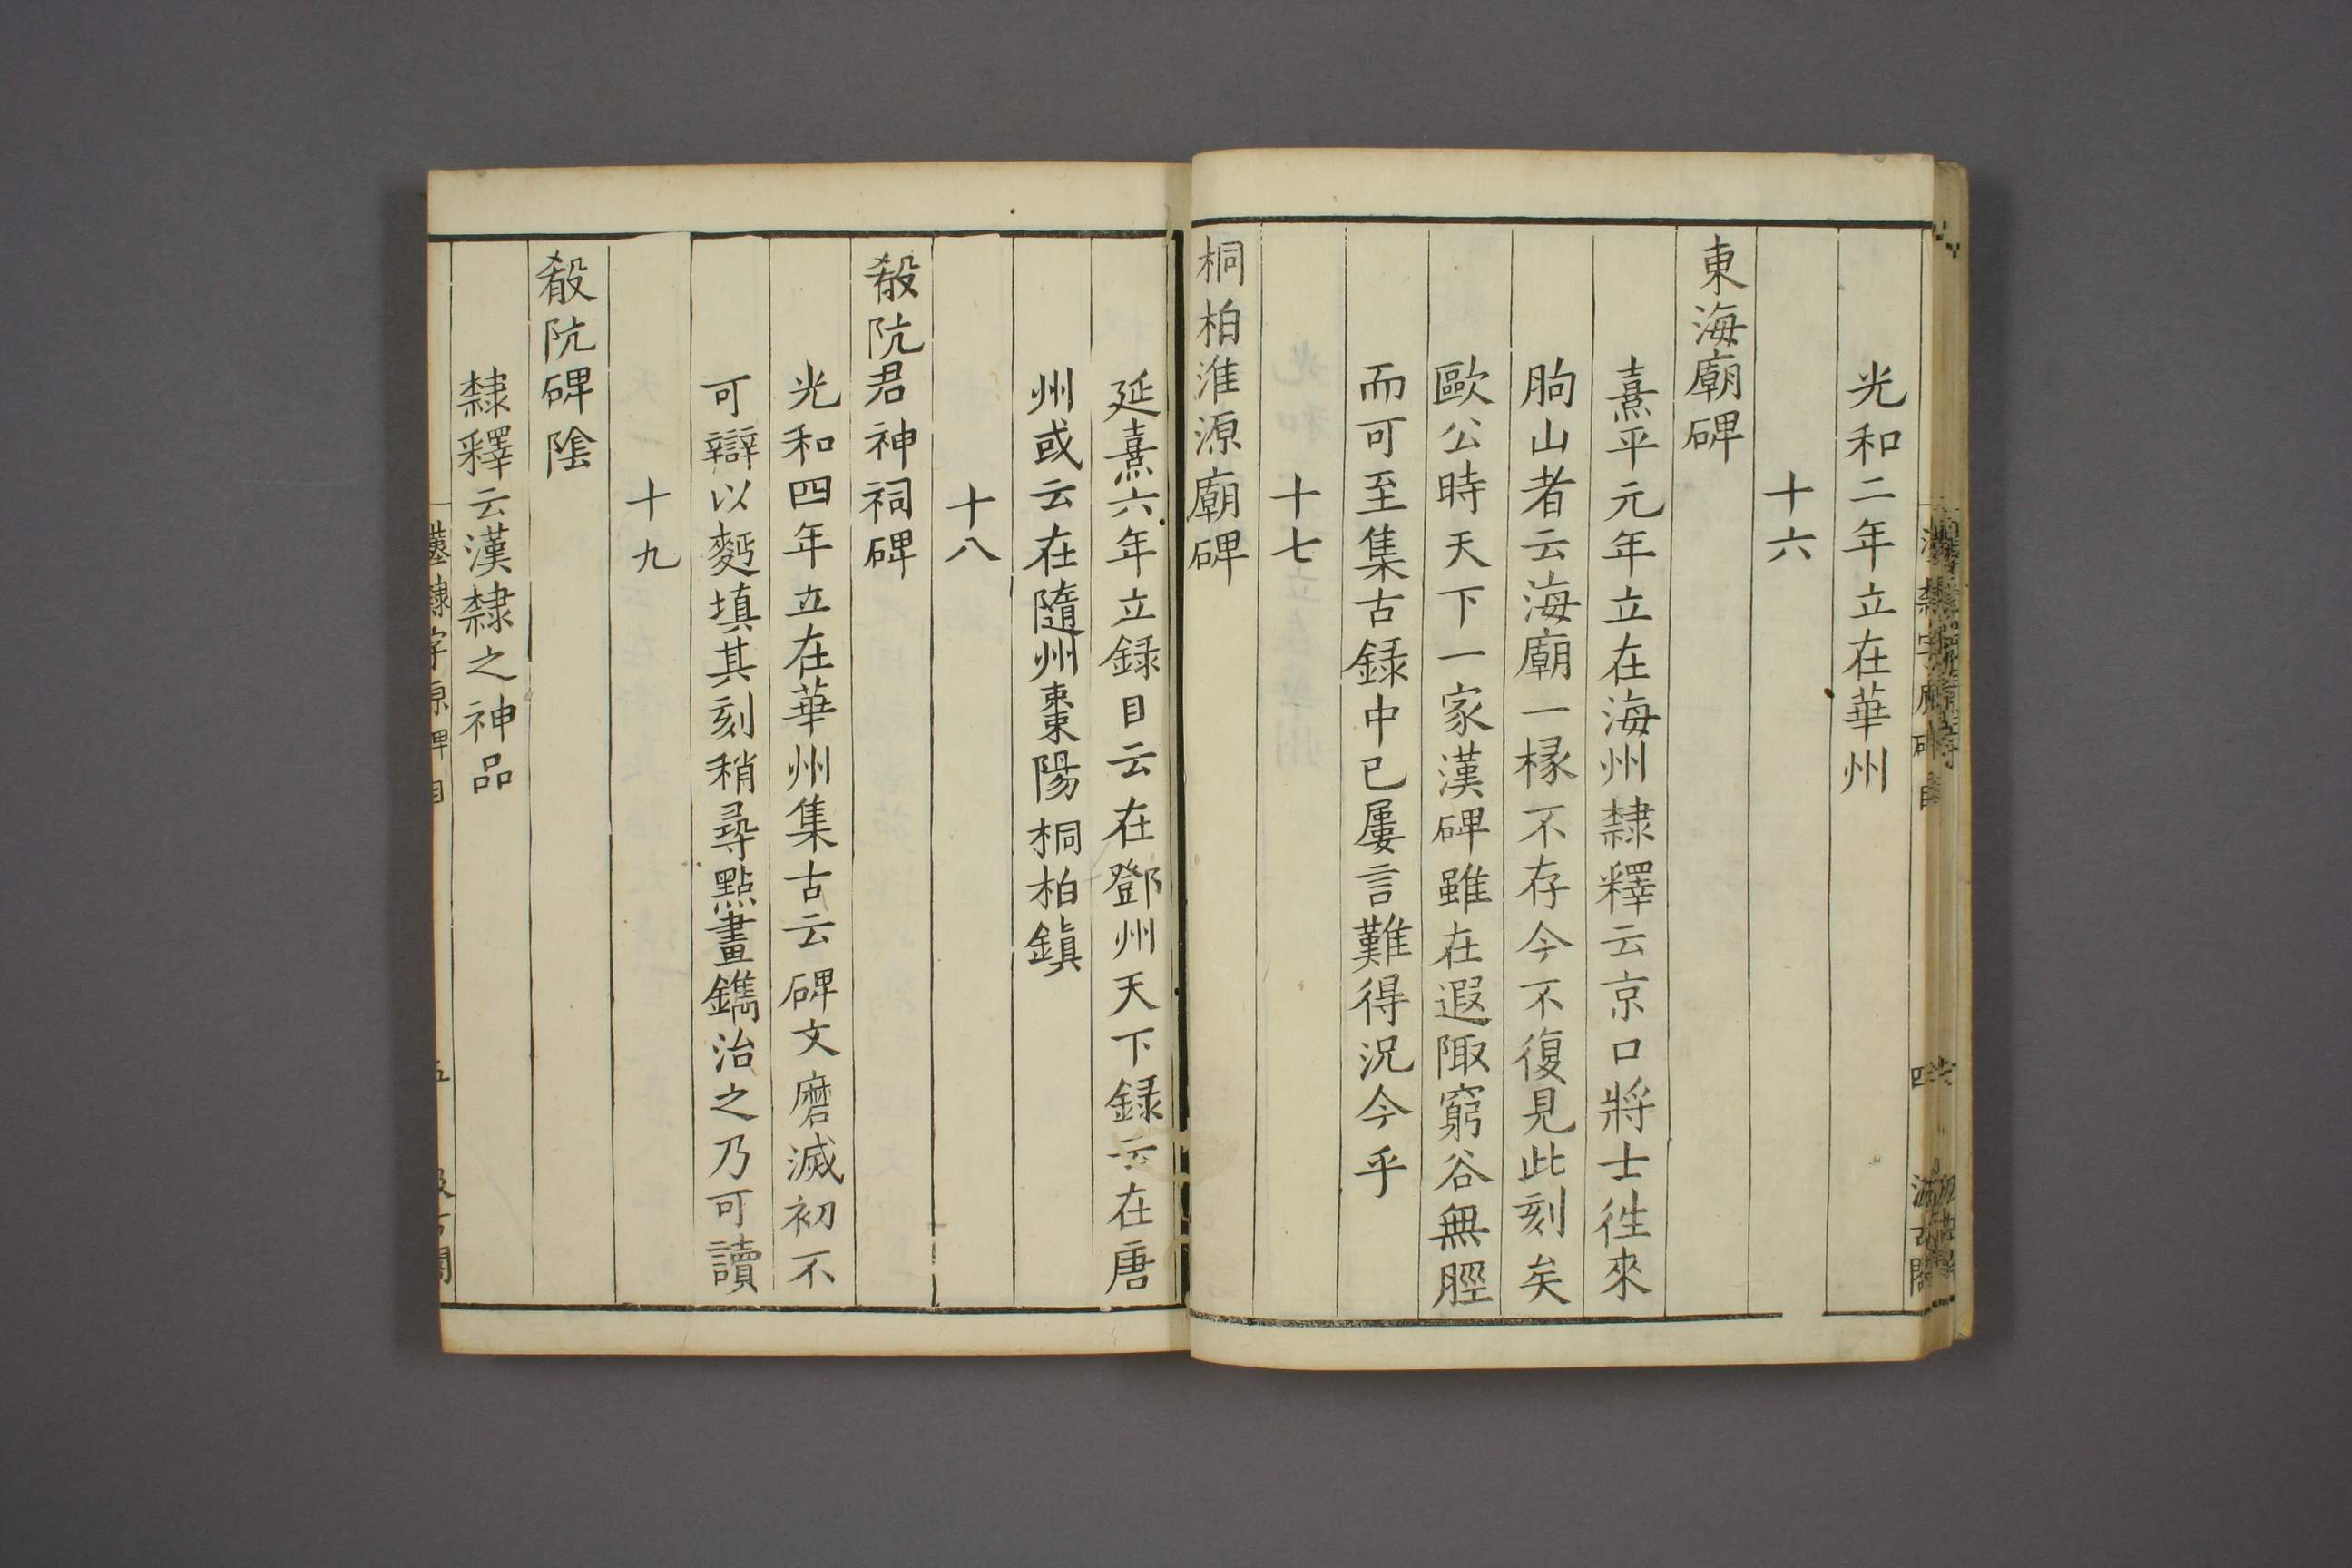 光和二年立在華州
十六
東海廟碑
熹平元年立在海州隸釋云京口將士徃來
朐山者云海廟一椽不存今不復見此刻矣
歐公時天下一家漢碑雖在遐陬窮谷無脛
而可至集古録中已屢言難得況今乎
十七
桐柏淮源廟碑
延熹六年立録目云在鄧州天下録云在唐
州或云在隨州棗陽桐柏鎮
十八
殽阬君神祠碑
光和四年立在華州集古云碑文磨滅初不
可辯以麫填其刻稍尋點畫鐫治之乃可讀
十九
殽阬碑陰
隸釋云漢隸之神品